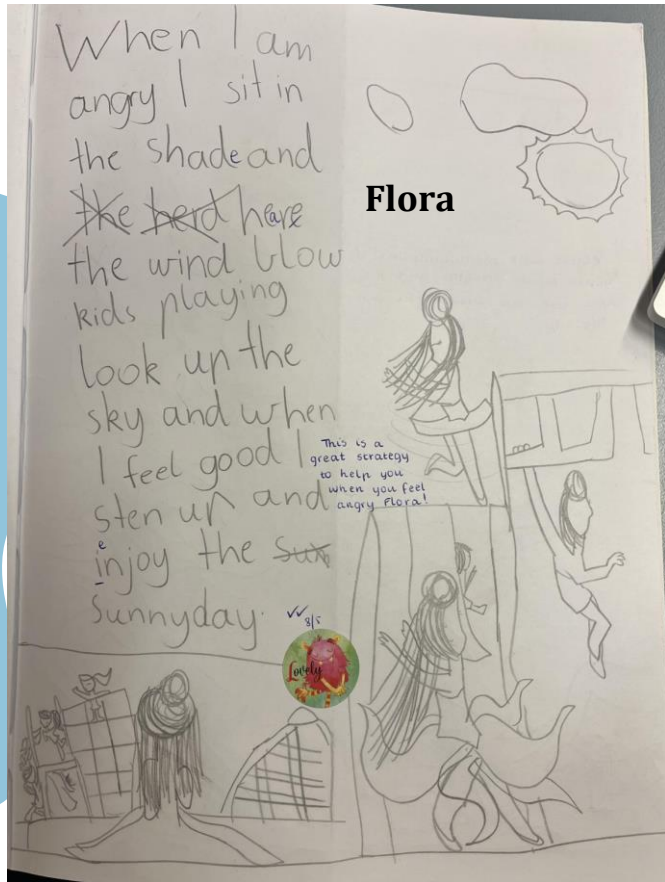 When I am
angry I sit in
the shade and
the herd heare
the wind blow
kids playing
look up the
sky and when
I feel good I
sten up and
enjoy the sun
Sunnyday.
Flora
This is a
great strategy
to help you
when you feel
angry Flora!
8/5
Lovely